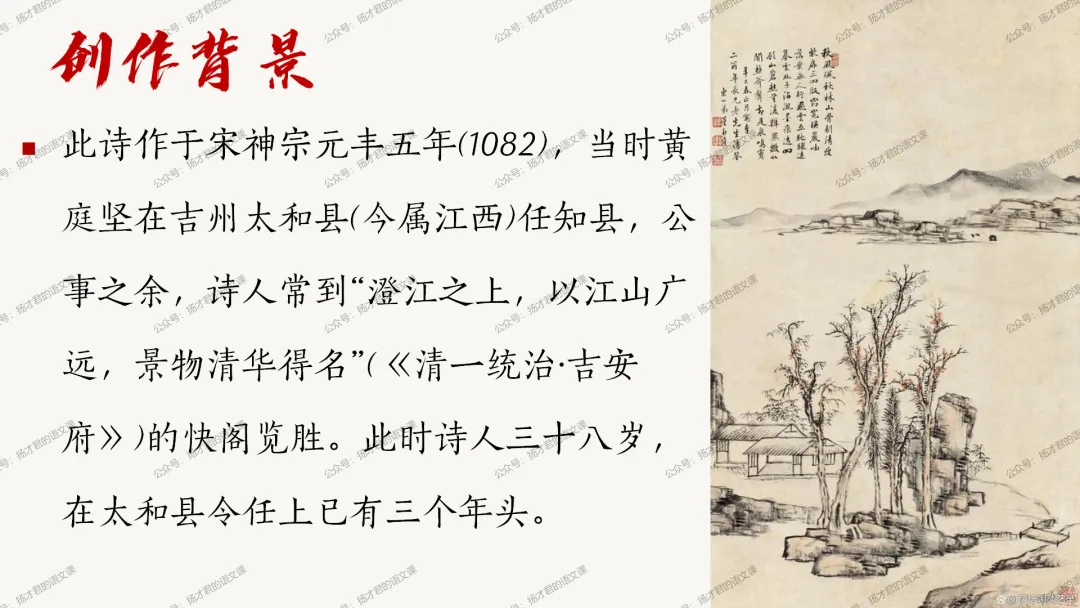 创作背景
此诗作于宋神宗元丰五年(1082)，当时黄
庭坚在吉州太和县(今属江西)任知县，公
事之余，诗人常到“澄江之上，以江山广
远，景物清华得名”(《清一统治·吉安
府》)的快阁览胜。此时诗人三十八岁，
在太和县令任上已有三个年头。
公众号：扬才君的语文课